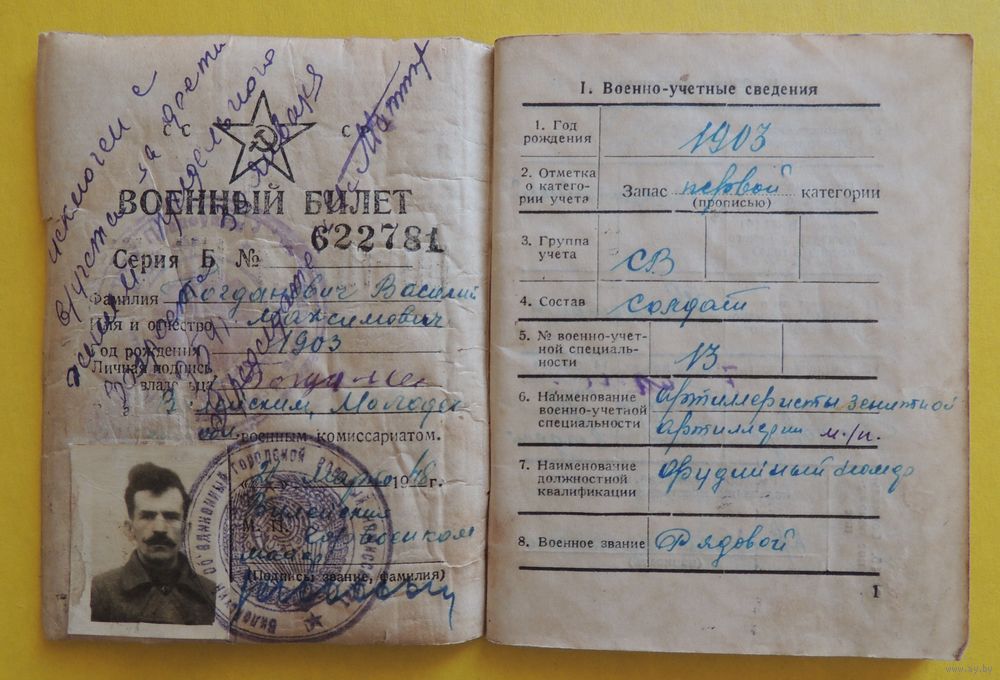 исключен с
в/учета
за дости
жением
предельного
возраста
СС
С
ВОЕННЫЙ БИЛЕТ
Серия Б № 622781
Фамилия Богданович Василий
Имя и отчество Максимович
Год рождения 1903
Личная подпись
владельца
военным комиссариатом.
Марта 1948 г.
М. П.
Вилейский
майор
(Подпись, звание, фамилия)
I. Военно-учетные сведения
1. Год рождения 1903
2. Отметка
о катего-
рии учета
Запас первой категории
(прописью)
3. Группа
учета
СВ
4. Состав солдат
5. № военно-учет-
ной специаль-
ности
13
6. Наименование
военно-учетной
специальности
артиллеристы зенитной
артиллерии м./п.
7. Наименование
должностной
квалификации
орудийный
8. Военное звание Рядовой
1
www.ay.by